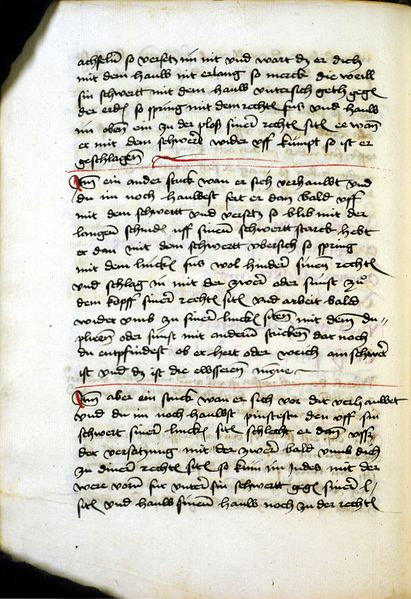 achseln so versetz im nit vnd wart dz er dich
mit dem hauw nit erlang so merck die weill
sin schwertt mit dem hauw vntersich geth gegen
der erden so spring mit dem rechten fus vnd hauw
im oben ein zu der ploß siner rechten siten ee wan
er mit dem schwert wider vff kumpt so ist er
geschlagen
Item ein ander stuck wan er sich verhauwt vnd
du im noch hauwest fert er dan bald vff
mit dem schwertt vnd versetz so blib mit der
langen schniden vff sinem schwertt starck hebt
er dan mit dem schwertt vbersich so spring
mit dem lincken fus wol hinder sinen rechten
vnd schlag in mit der zwer oder sunst zu
dem kopff siner rechten siten vnd arbeit bald
wider vmb zu siner lincken siten mit dem du-
pliren oder sunst mit anderen stucken dar noch
du entpfindest ob er hert oder weich am schwert
ist vnd dz ist die
Item aber ein stuck wan er sich vor dir verhauwet
vnd du im noch hauwest pindestu dan vff sin
schwert siner lincken siten schlecht er dan vss
der versatzung mit der zwer bald vmb dich
zu diner rechten siten so kum im Indes mit der
were vorn fur vnter sin schwertt gegen siner l
siten vnd hauw sinem hauw noch zu der rechten